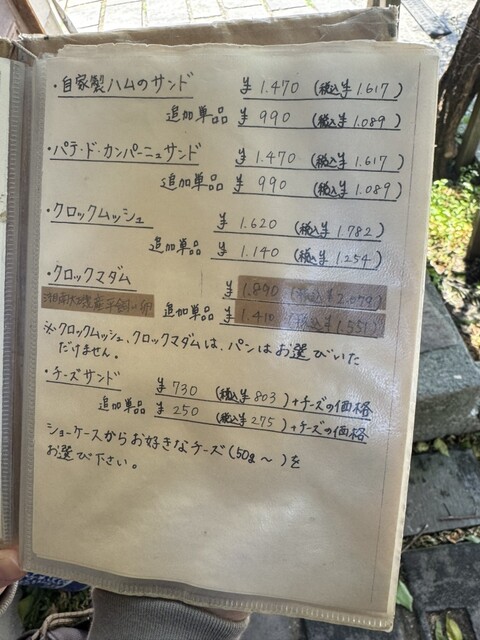 ・自家製ハムのサンド ¥1.470 (税込¥1.617)
追加単品 ¥990 (税込¥1.089)
・パテ・ド・カンパーニュサンド ¥1.470 (税込¥1.617)
追加単品 ¥990 (税込¥1.089)
・クロックムッシュ ¥1.620 (税込¥1.782)
追加単品 ¥1.140 (税込¥1.254)
・クロックマダム ¥1.890 (税込¥2.079)
追加単品 ¥1.410 (税込¥1.551)
※クロックムッシュ、クロックマダムは、パンはお選びいた
だけません。
・チーズサンド ¥730 (税込¥803)+チーズの価格
追加単品 ¥250 (税込¥275)+チーズの価格
ショーケースからお好きなチーズ(50g〜)を
お選び下さい。